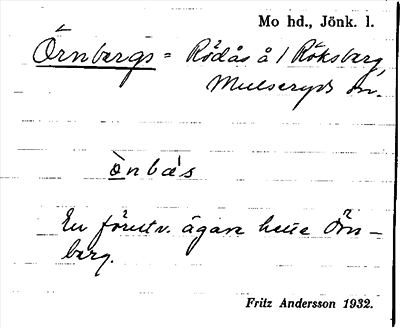 Mo hd., Jönk. l.
Örnbergs = Rödås å / Röksberg,
Mulseryds sn.
ònbæ̀s
En föreg. ägare hette Örn-
berg.
Fritz Andersson 1932.